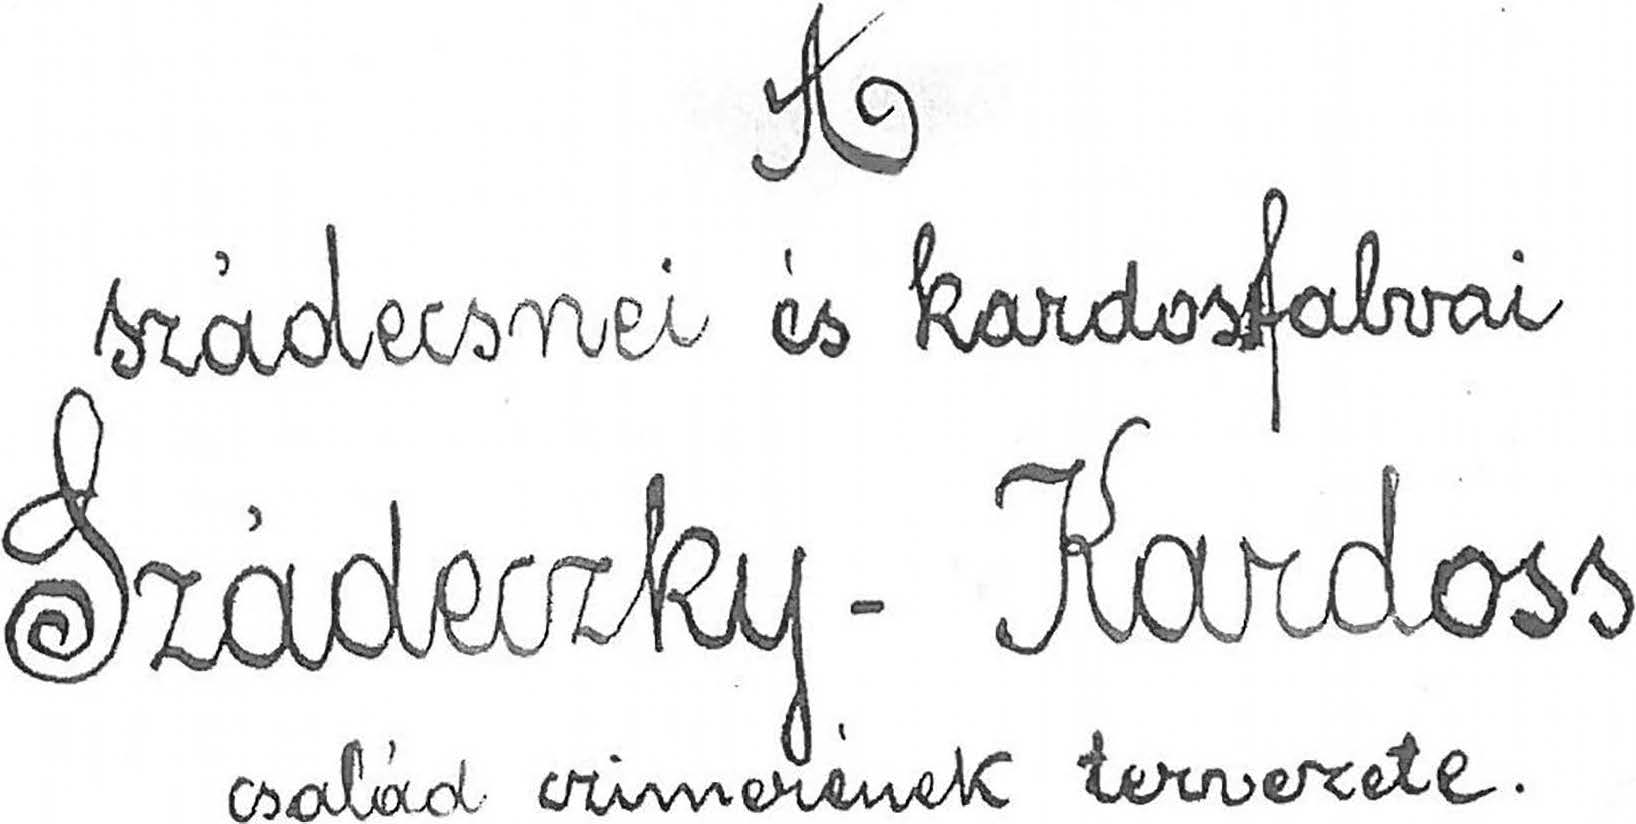 A
szádecsnei és kardosfalvai
Szádeczky - Kardoss
család czimerének tervezete.